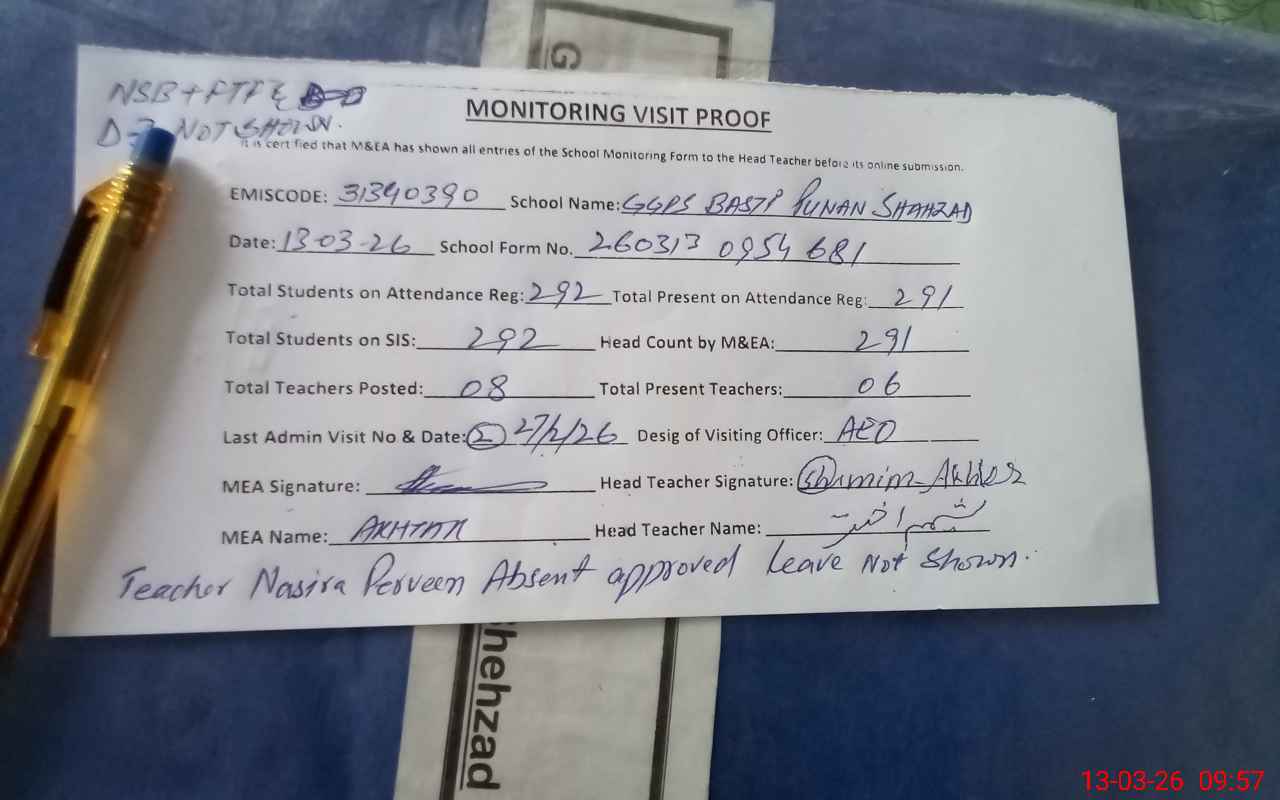 G
NSB + FTF &
D-3 NOT SHOWN.
MONITORING VISIT PROOF
It is certified that M&EA has shown all entries of the School Monitoring Form to the Head Teacher before its online submission.
EMISCODE: 31340390 School Name: GGPS BASTI PUNAN SHAHZAD
Date: 13-03-26 School Form No. 260313 0954 681
Total Students on Attendance Reg: 292 Total Present on Attendance Reg: 291
Total Students on SIS: 292 Head Count by M&EA: 291
Total Teachers Posted: 08 Total Present Teachers: 06
Last Admin Visit No & Date: 2 27/2/26 Desig of Visiting Officer: AEO
MEA Signature: Head Teacher Signature: Shamim Akhter
MEA Name: AKHTAR Head Teacher Name: شمیم اختر
Teacher Nasira Perveen Absent approved leave Not Shown.
hehzad
13-03-26 09:57